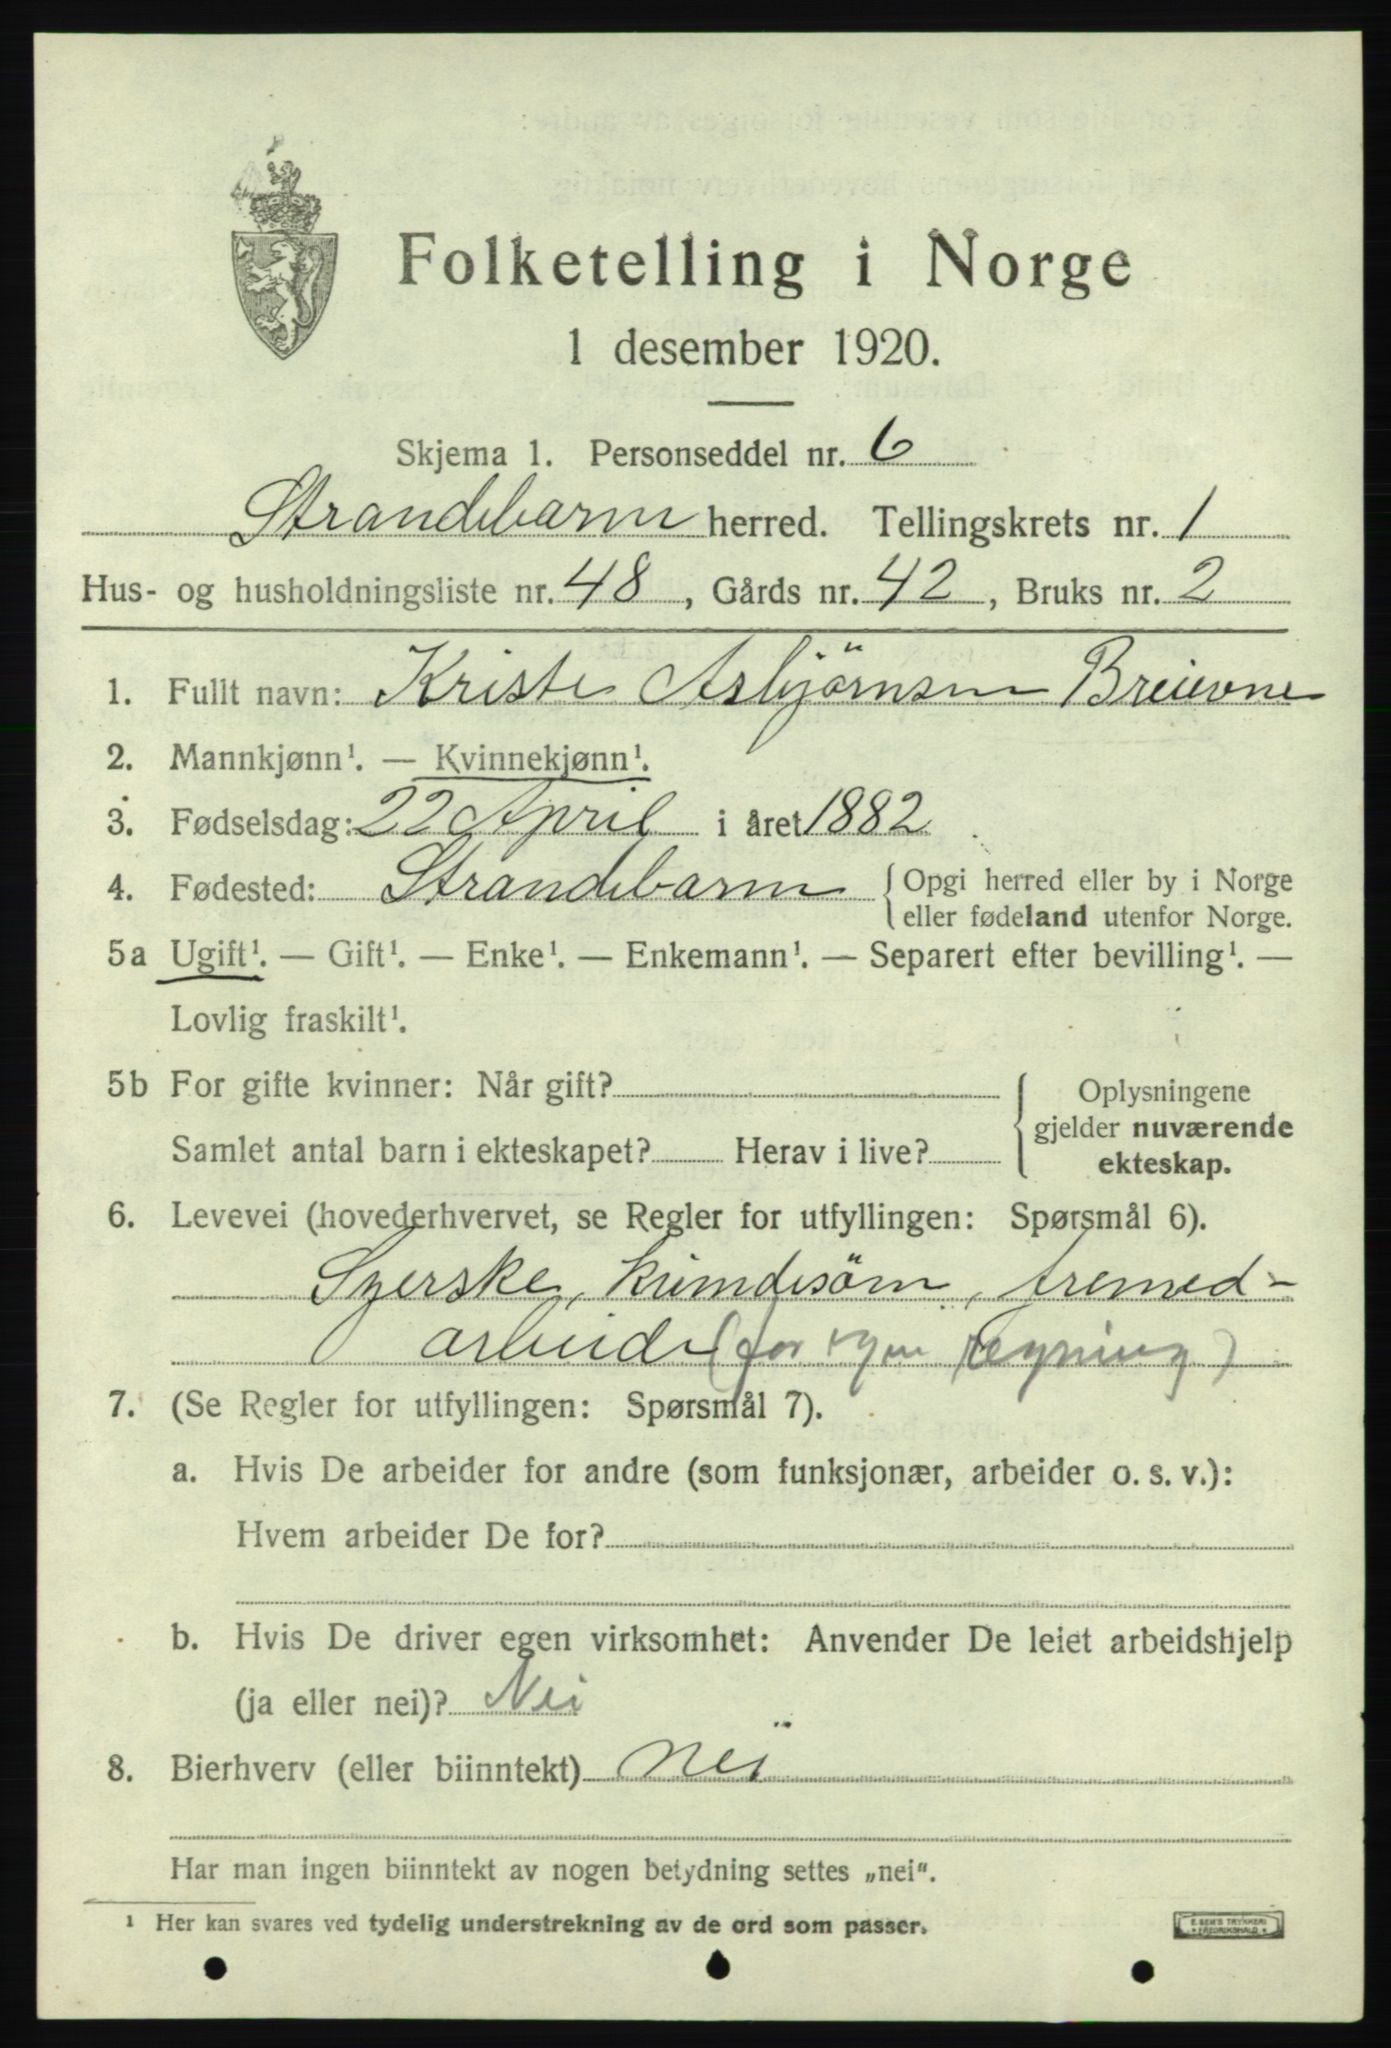 Folketelling i Norge
1 desember 1920.
Skjema 1. Personseddel nr. 6
Strandebarm herred. Tellingskrets nr. 1
Hus- og husholdningsliste nr. 48, Gårds nr. 42, Bruks nr. 2
1. Fullt navn: Kriste Asbjörnsen
2. Mannkjønn¹. — Kvinnekjønn¹.
3. Fødselsdag: 22 April i året 1882
4. Fødested: Strandebarm {Opgi herred eller by i Norge
eller fødeland utenfor Norge.
5a Ugift¹. — Gift¹. — Enke¹. — Enkemann¹. — Separert efter bevilling¹. —
Lovlig fraskilt¹.
5b For gifte kvinner: Når gift? {Oplysningene
gjelder nuværende
Samlet antal barn i ekteskapet? Herav i live? ekteskap.
6. Levevei (hovederhvervet, se Regler for utfyllingen: Spørsmål 6).
Syerske, kundesöm, fremed-
arbeide (for egen regning)
7. (Se Regler for utfyllingen: Spørsmål 7).
a. Hvis De arbeider for andre (som funksjonær, arbeider o. s. v.):
Hvem arbeider De for?
b. Hvis De driver egen virksomhet: Anvender De leiet arbeidshjelp
(ja eller nei)? Nei
8. Bierhverv (eller biinntekt) nei
Har man ingen biinntekt av nogen betydning settes „nei“.
¹ Her kan svares ved tydelig understrekning av de ord som passer.
E. SEM'S TRYKKERI
FREDRIKSHALD